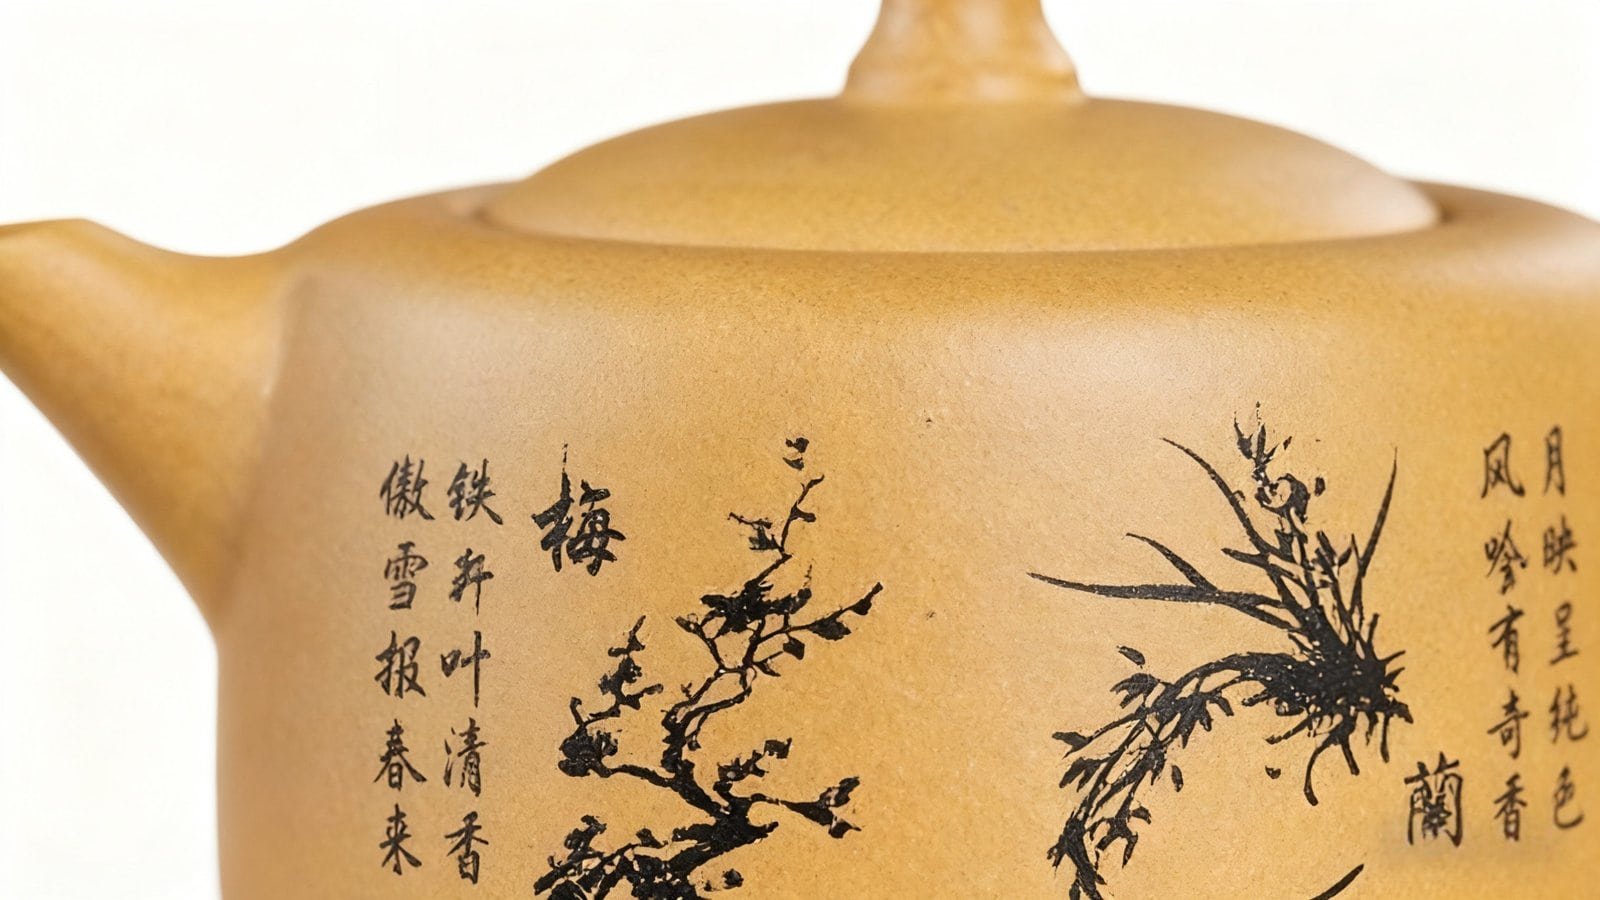 月映呈纯色
风吟有奇香
蘭
梅
铁叶清香
傲雪报春来